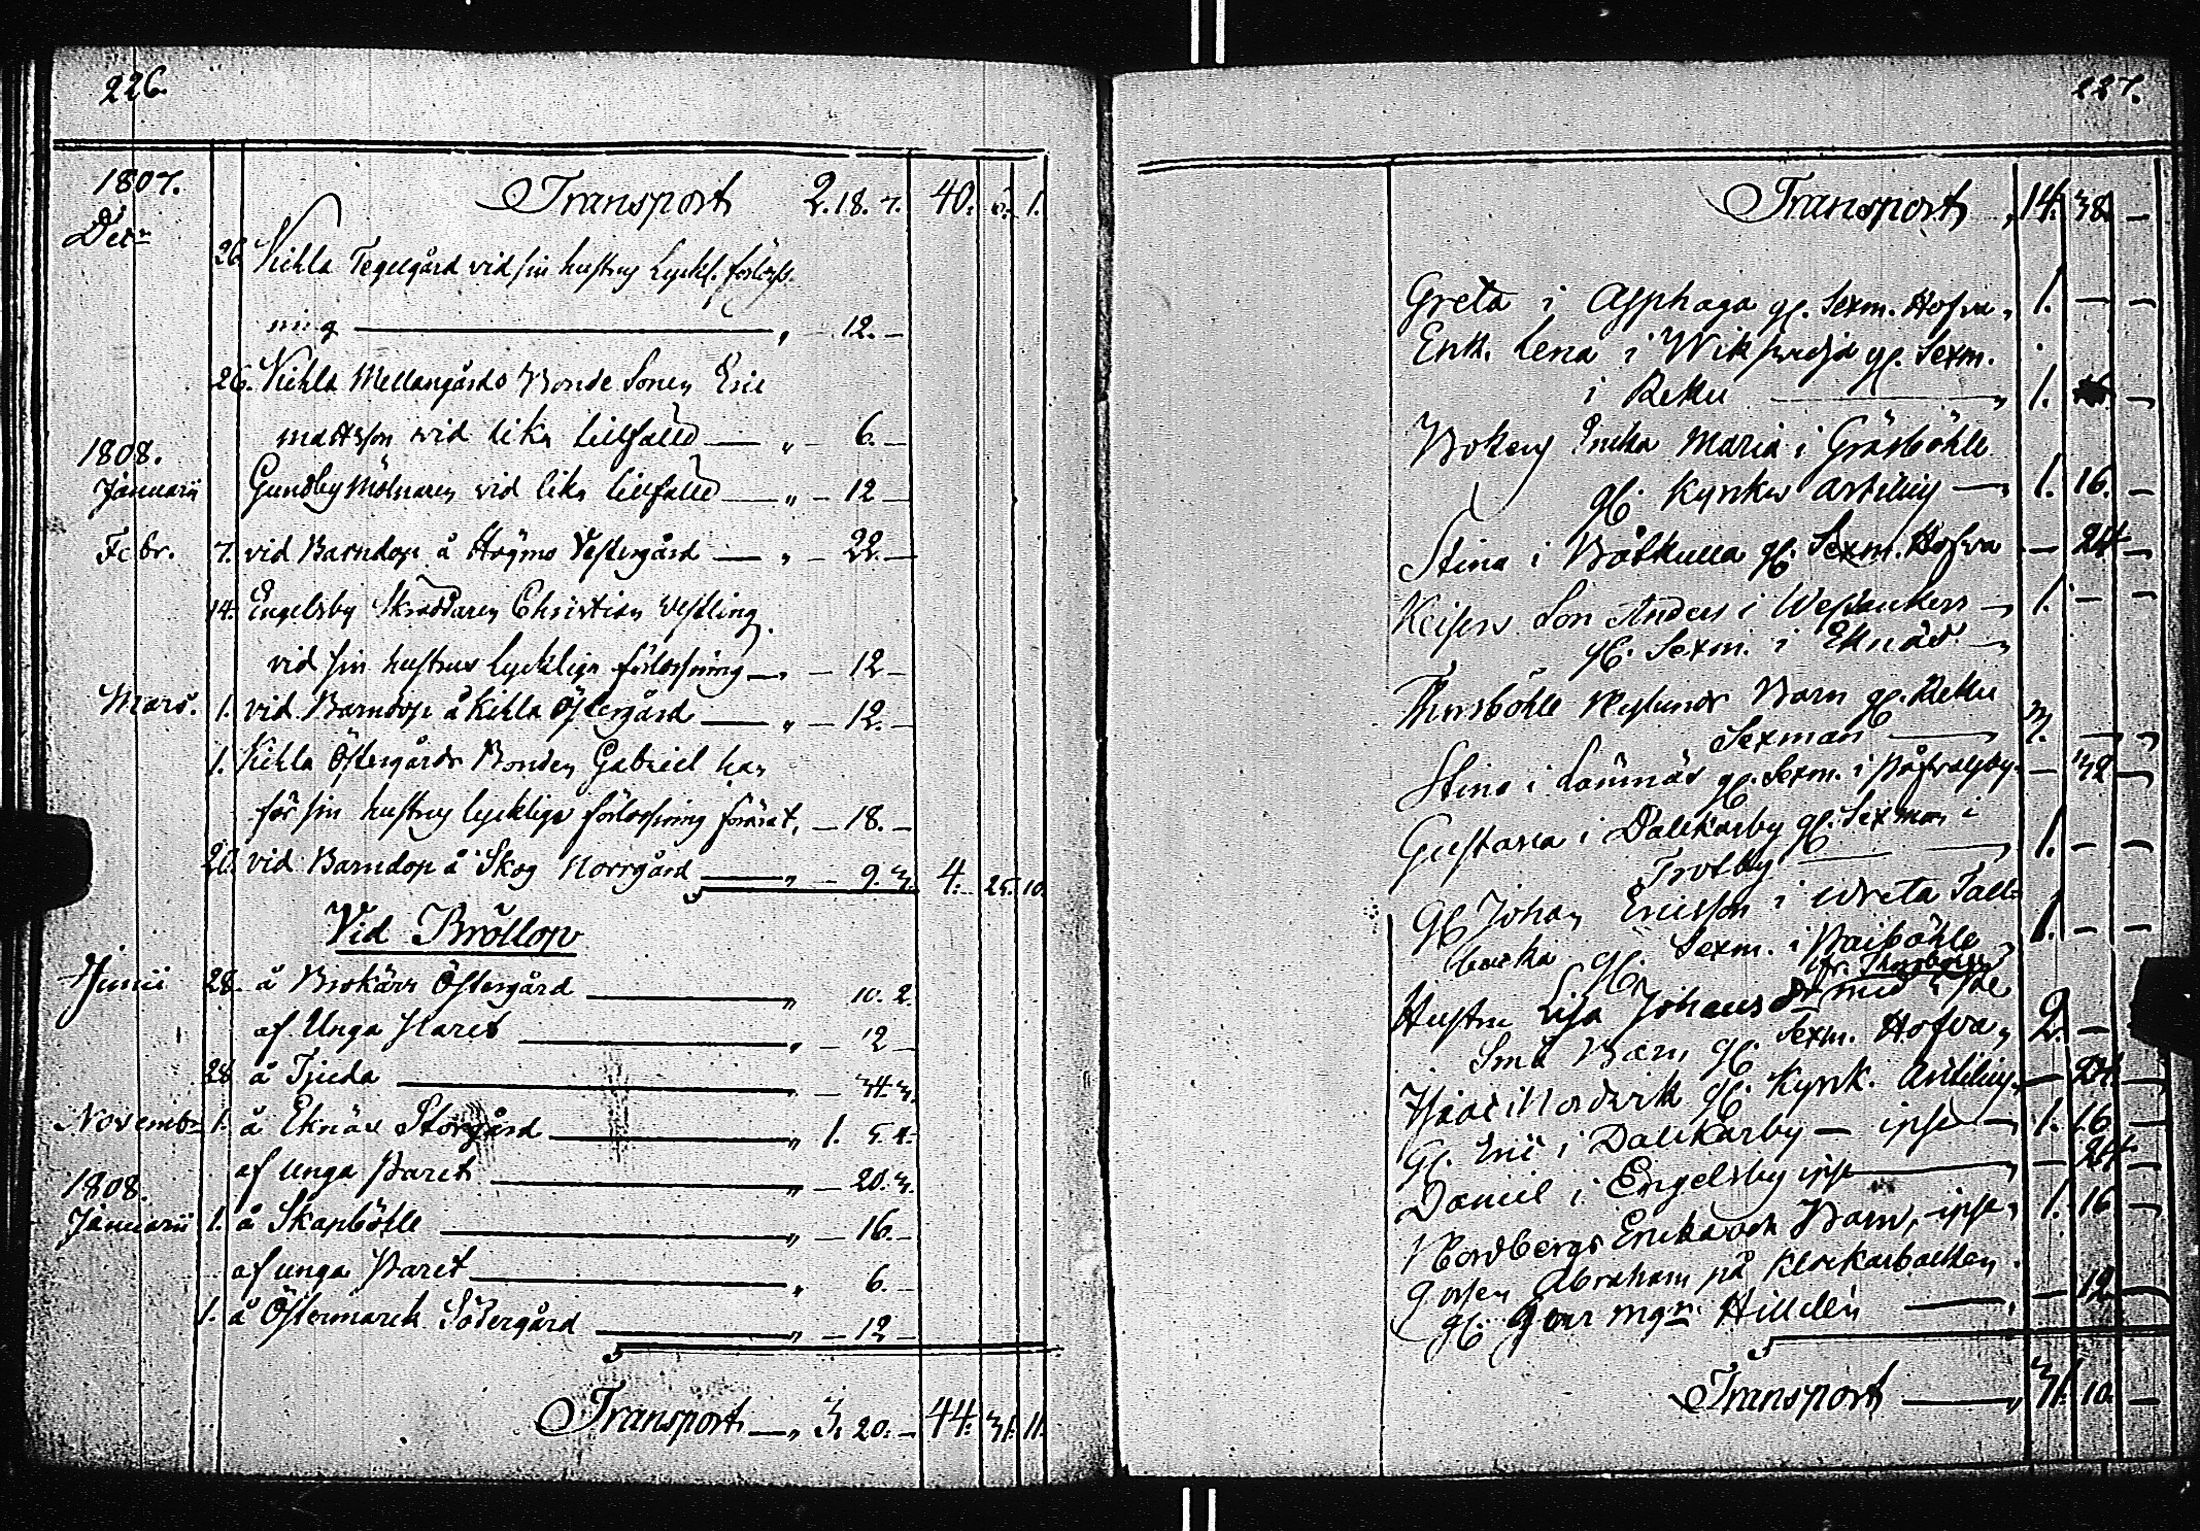 226.
1807. Transport 2. 18. 7. 40. 6. 1.
Decr
26. Kihla Tegelgård vid sin hustrus Lyckl. förloss-
ning — „ — 12. —
26. Kihla Mellangårds Bonde Sonen Eric
Mattsson vid lika tillfälle — „ — 6. —
1808.
Januarii Gundby Mölnaren vid lika tillfälle — „ — 12 —
Febr. 7. vid Barndop å Högmo Vestergård — „ — 22. —
14. Engelsby Skräddaren Christian Vesling
vid sin hustrus lyckliga förlossning — „ — 12 —
Mars. 1. vid Barndop å Kihla Östergård — „ — 12. —
1. Kihla Östergårds Bonden Gabriel har
för sin hustrus lyckliga förlossning förärat, — 18. —
20. vid Barndop å Skog Norrgård — „ — 9. 3. 4. 25. 10.
Vid Bröllop
Junii 28. å Brokärr Östergård — „ 10. 2.
af Unga Paret — „ — 12 —
28 å Tjuda — „ — 34. 3.
Novembr 1. å Eknäs Storgård — „ 1. 5. 4.
af unga Paret — „ — 20. 3.
1808.
Januarii 1. å Skapböhle — „ — 16. —
af unga Paret — „ 6. —
1. å Östermarck Södergård — „ — 12 —
Transport — „ 3. 20. — 44. 31. 11.
227.
Transport „ 14. 38. —
Greta i Asphaga gl. Sexm. Hofva „ 1. — —
Enk. Lena i Wik gl. Sexm.
i Reku — „ 1. —
Maria i Gräsböhle
gl. Kyrkw — „ 1. 16. —
Stina i Båtkulla gl. Sexm. Hofva — 24 —
Keisers Son Anders i — „ 1. — —
gl. Sexm. i Eknäs —
Barn gl. Reku
Sexman — „ 3. — —
Stina i Lamnäs gl. Sexm. i — 32 —
Gustava i Dalkarby gl. Sexman i
Trotby — „ 1. — —
Gl Johan Ericsson i Wreta Tall-
backa gl. Sexm. i Paiböhle „ 1. — —
Hustru Lisa Johansdr med
Små Barn gl. Sexm. Hofva „ 2. —
i Nordvik gl. Kyrk. — 24 —
Gl. Eric i Dalkarby — ipse — „ 1. 16 —
Daniel i Engelsby ipse — „ — 24 —
Nordbergs Enka och Barn, ipse „ 1. 16 —
Gossen Abraham på Klockarbacken
gl. Mgr. Hilldén — „ — 12 —
Transport — „ 31. 10. —